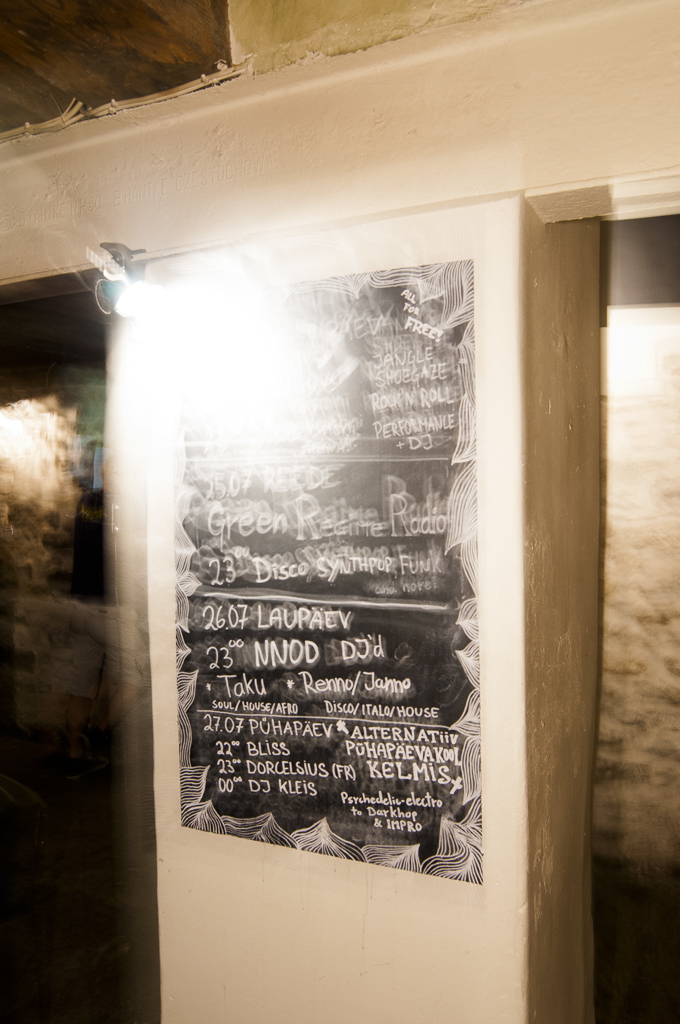 ALL
FOR
FREE!
JANGLE
SHOEGAZE
ROCK'N'ROLL
PERFORMANCE
+ DJ
25.07 REEDE
Green Regime Radio
23°° DISCO/SYNTHPOP, FUNK
and more!
26.07 LAUPÄEV
23°° NNOD DJ'd
* Taku * Renno/Janno
SOUL/HOUSE/AFRO DISCO/ITALO/HOUSE
27.07 PÜHAPÄEV * ALTERNATIIV
PÜHAPÄEVAKOOL
KELMIS
22°° BLISS
23°° DORCELSIUS (FR)
00°° DJ KLEIS
Psychedelic-electro
to Darkhop
& IMPRO